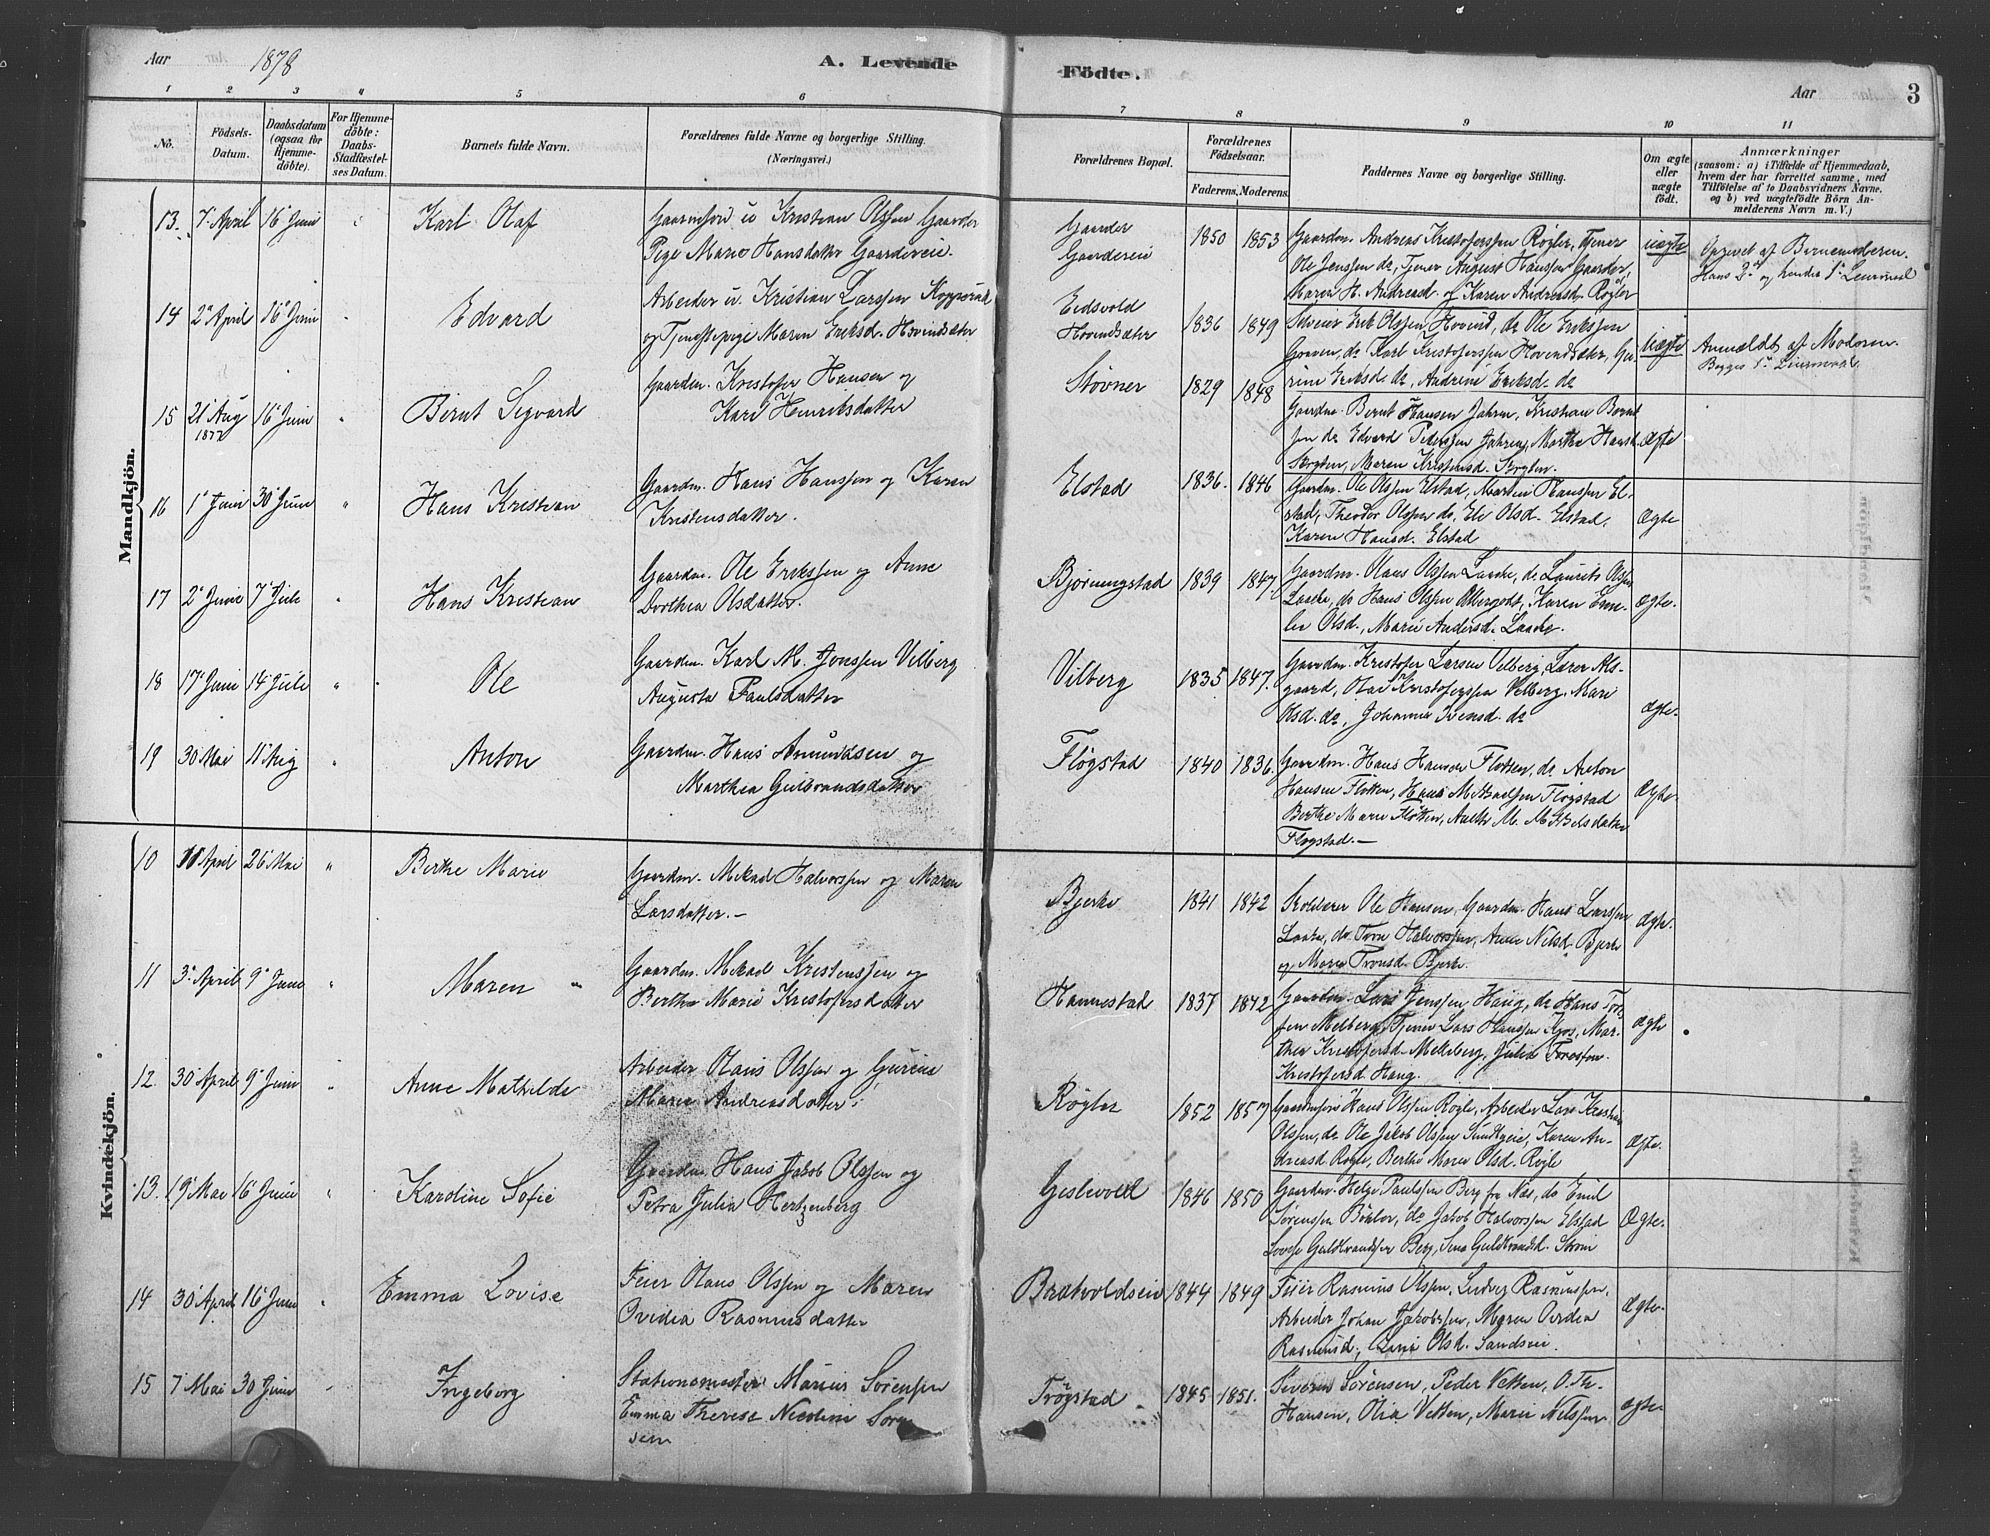 Aar 1878 A. Levende Födte. Aar 3
1 2 3 4 5 6 7 8 9 10 11
No.
Födsels-
Datum.
Daabsdatum
(ogsaa for
Hjemme-
döbte).
For Hjemme-
döbte:
Daabs-
Stadfæstel-
ses Datum.
Barnets fulde Navn.
Forældrenes fulde Navne og borgerlige Stilling.
(Næringsvei.)
Forældrenes Bopæl.
Forældrenes
Födselsaar.
Faderens. Moderens.
Faddernes Navne og borgerlige Stilling.
Om ægte
eller
uægte
födt.
Anmærkninger
(saasom: a) i Tilfælde af Hjemmedaab,
hvem der har forrettet samme, med
Tilföielse af to Daabsvidners Navne.
og b) ved uægtefödte Börn An-
melderens Navn m. V.)
Mandkjön.
13. 7 April 16 Juni Karl Olaf
Gaardmsøn u Kristian Olssen Gaarder
Pige Marie Hansdatter Gaardereie.
Gaarder
Gaardereie
1850 1853
Gaardm. Andreas Kristofersen Røgler, Tjener
Ole Jenssen do, Tjener August Hanssen Gaarder,
Maren H. Andreasd. og Karen Andreasd. Røgler
uægte
Opgivet af Barnemoderen.
Hans 2det og hendes 1ste Leiermaal
14 2 April 16 Juni Edvard
Arbeider u. Kristian Larssen
og Tjenestepige Maren Eriksd. Hovindsæter.
Eidsvold
Hovindsæter
1836 1849
Selveier Erik Olssen Hovind, do Ole Erikssen
do Karl Kristoferssen Hovindsæter,
Eriksd. do, Andrine Eriksd. do
uægte
Anmeldt af Moderen.
Begges 1ste Leiermaal
15 21 Aug 1877 16 Juni Bernt Sigvard
Gaardm. Kristofer Hansen og
Kari Henriksdatter
Støvner
1829 1848
Gaardm. Bernt Hansen Jahren, Kristian Bernt-
sen do Edvard Pederssen Jahren, Marthe Hansd.
Maren Kristensd.
ægte
16 1 Juni 30 Juni Hans Kristian
Gaardm. Hans Hanssen og Karen
Kristensdatter.
Elstad
1836. 1846
Gaardm. Ole Olssen Elstad, Martin Hanssen El-
stad, Theodor Olssen do, Ele Olsd. Elstad,
Karen Hansd. Elstad
Ægte
17 2 Juni 7 Juli Hans Kristian
Gaardm. Ole Erikssen og Anne
Dorthea Olsdatter.
Bjørningstad
1839 1847.
Gaardm. Olaus Olssen Laake, do Laurits Olssen
Laake, do Hans Olssen Karen Eme-
lie Olsd., Marie Andersd. Laake.
Ægte.
18 17 Juni 14 Juli Ole
Gaardm. Karl M. Jonssen Vilberg
Augusta Paulsdatter
Vilberg
1835 1847.
Gaardm. Kristofer Larsen Vilberg, Lærer Als-
gaard, Olai Kristoferssen Vilberg, Mari
Olsd. do, Johanna Svensd. do
Ægte.
19 30 Mai 11 Aug Anton
Gaardm. Hans Amundsen og
Marthea Gulbrandsdatter
Fløgstad
1840 1836.
Gaardm. Hans Hansen Fløtten, do Anton
Hansen Fløtten, Hans Fløgstad
Berthe Marie Fløtten, M.
Fløgstad.
Ægte.
Kvindekjön.
10 11 April 26 Mai Berthe Marie
Gaardm. Mikael Halvorssen og Maren
Larsdatter.
Bjerke
1841 1842
Skolelærer Ole Hansen, Gaardm. Hans Larssen
Laake, do Tore Halvorssen, Anne Nilsd. Bjerke
og Maren Bjerke.
Ægte.
11 3 April 9 Juni Maren
Gaardm. Mikael Kristenssen og
Berthe Marie Kristofersdatter
Hannestad
1837 1842
Gaardm. Lars Jenssen Haug, do Hans Tores-
sen Melberg, Tjener Lars Hanssen Kjos, Mar-
thea Kristofersd. Julia
Kristofersd Haug.
Ægte
12. 30 April 9 Juni Anne Mathilde
Arbeider Olaus Olssen og Gurina
Marie Andreasdatter
Røgler
1852 1857
Gaardmsøn Hans Olssen Røgle, Arbeider Lars Kristian
Olssen, do Ole Jakob Olssen Karen An-
dreasd Røgle, Berthe Marie Olsd. Røgle
Ægte.
13. 19 Mai 16 Juni Karoline Sofie
Gaardm. Hans Jakob Olssen og
Petra Julia Hertzenberg
Gislevold
1846 1850
Gaardm. Helge Paulssen Berg fra Næs, do Emil
Sørenssen Bøhler, do Jakob Halvorssen Elstad
Lovise Guldbrandssen Berg, Guldbrandsd. Strøm
Ægte.
14 30 April 16 Juni Emma Lovise
Feier Olaus Olssen og Maren
Ovidia Rasmusdatter
Brateoldseie
1844 1849
Feier Rasmus Olssen, Ludvig Rasmussen,
Arbeider Johan Jakobssen, Maren Ovidia
Rasmusd., Olsd. Sandseie.
Ægte.
15 7 Mai 30 Juni Ingeborg
Stationsmester Marius Sørensen
Emma Therese Nicoline Søren-
sen
Trøgstad
1845 1851.
Sørensen, Peder Vetten, O. Th.
Hansen, Olia Vetten, Marie Nilssen.
Ægte.